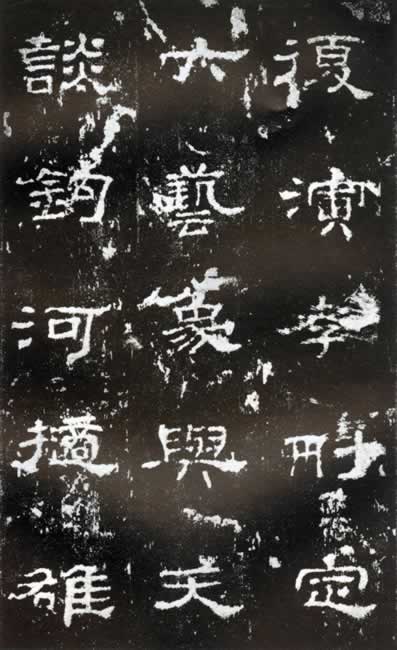 復演孝刪定
六藝象與天
談鉤河擿雒